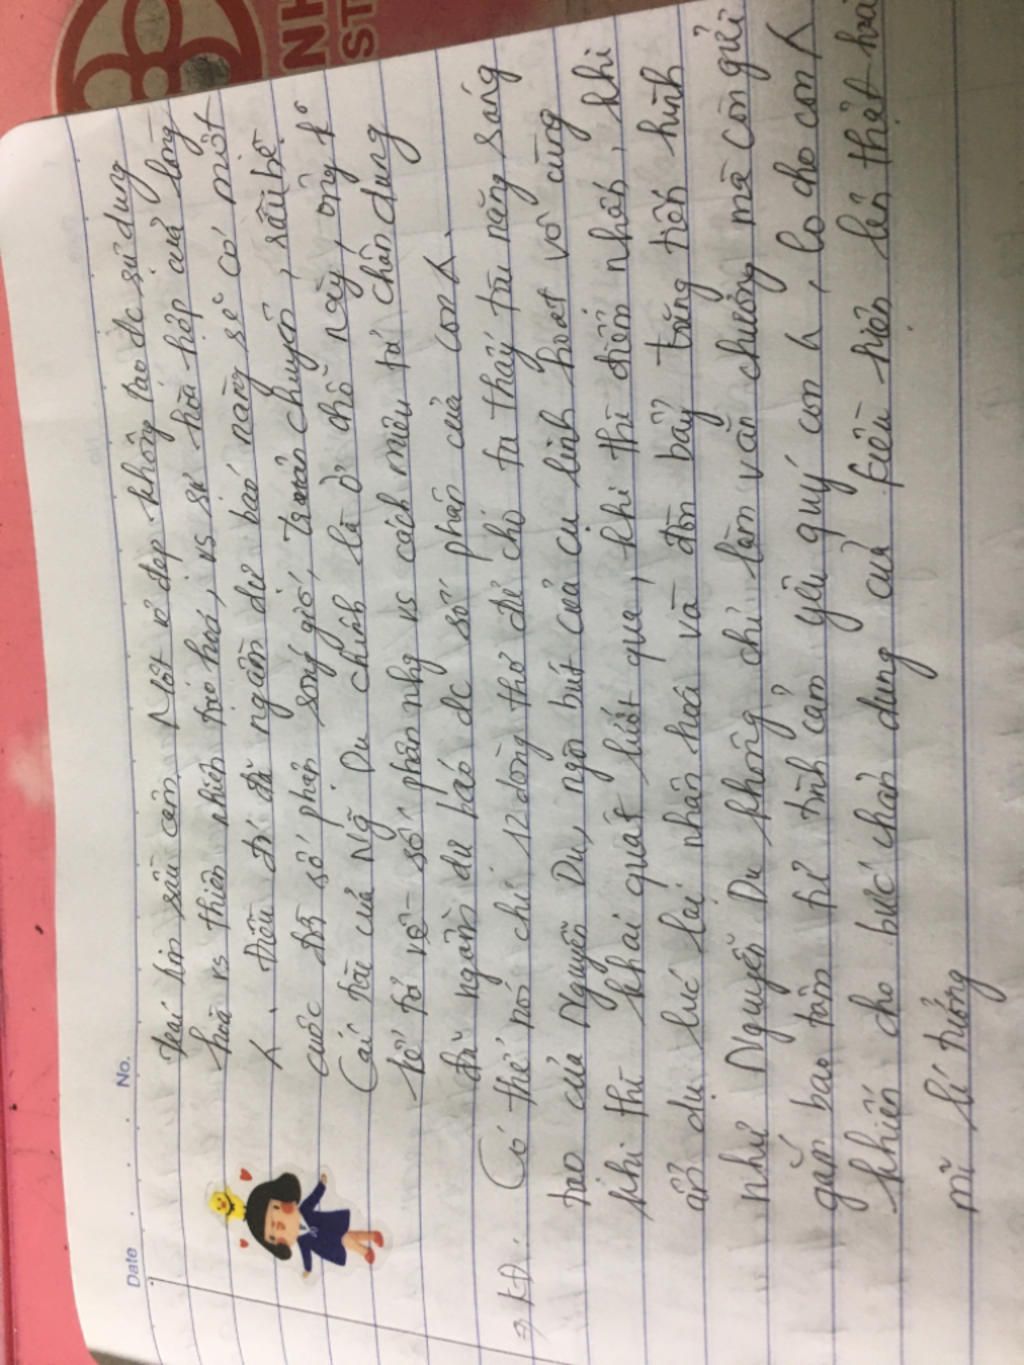 NH
ST
Date
No.
trái tim sâu cảm. Một vẻ đẹp không tạo đc sự dung
hoà vs thiên nhiên tạo hoá, vs sự hoà hợp của lòng
λ. Điều đó đã ngầm dự báo nàng sẽ có một
cuộc đời số phận sóng gió, truân chuyên, sầu bể.
Cái tài của Ng~ Du chính là ở chỗ này, ông ko
kể tả về số phận nhg vs cách miêu tả chân dung
đã ngầm dự báo đc số phận của con λ.
⇒ KĐ: Có thể nói chỉ 12 dòng thơ để cho ta thấy tài năng sáng
tạo của Nguyễn Du, ngòi bút của cụ linh hoạt vô cùng
khi thì khái quát lướt qua, khi thì điểm nhấn, khi
ẩn dụ lúc lại nhân hoá và đòn bẩy tăng tiến hình
như Nguyễn Du không chỉ làm văn chương mà còn gửi
gắm bao tâm tư tình cảm yêu quý con λ, lo cho con λ
khiến cho bức chân dung của Kiều hiện lên thật hoàn
mĩ lí tưởng